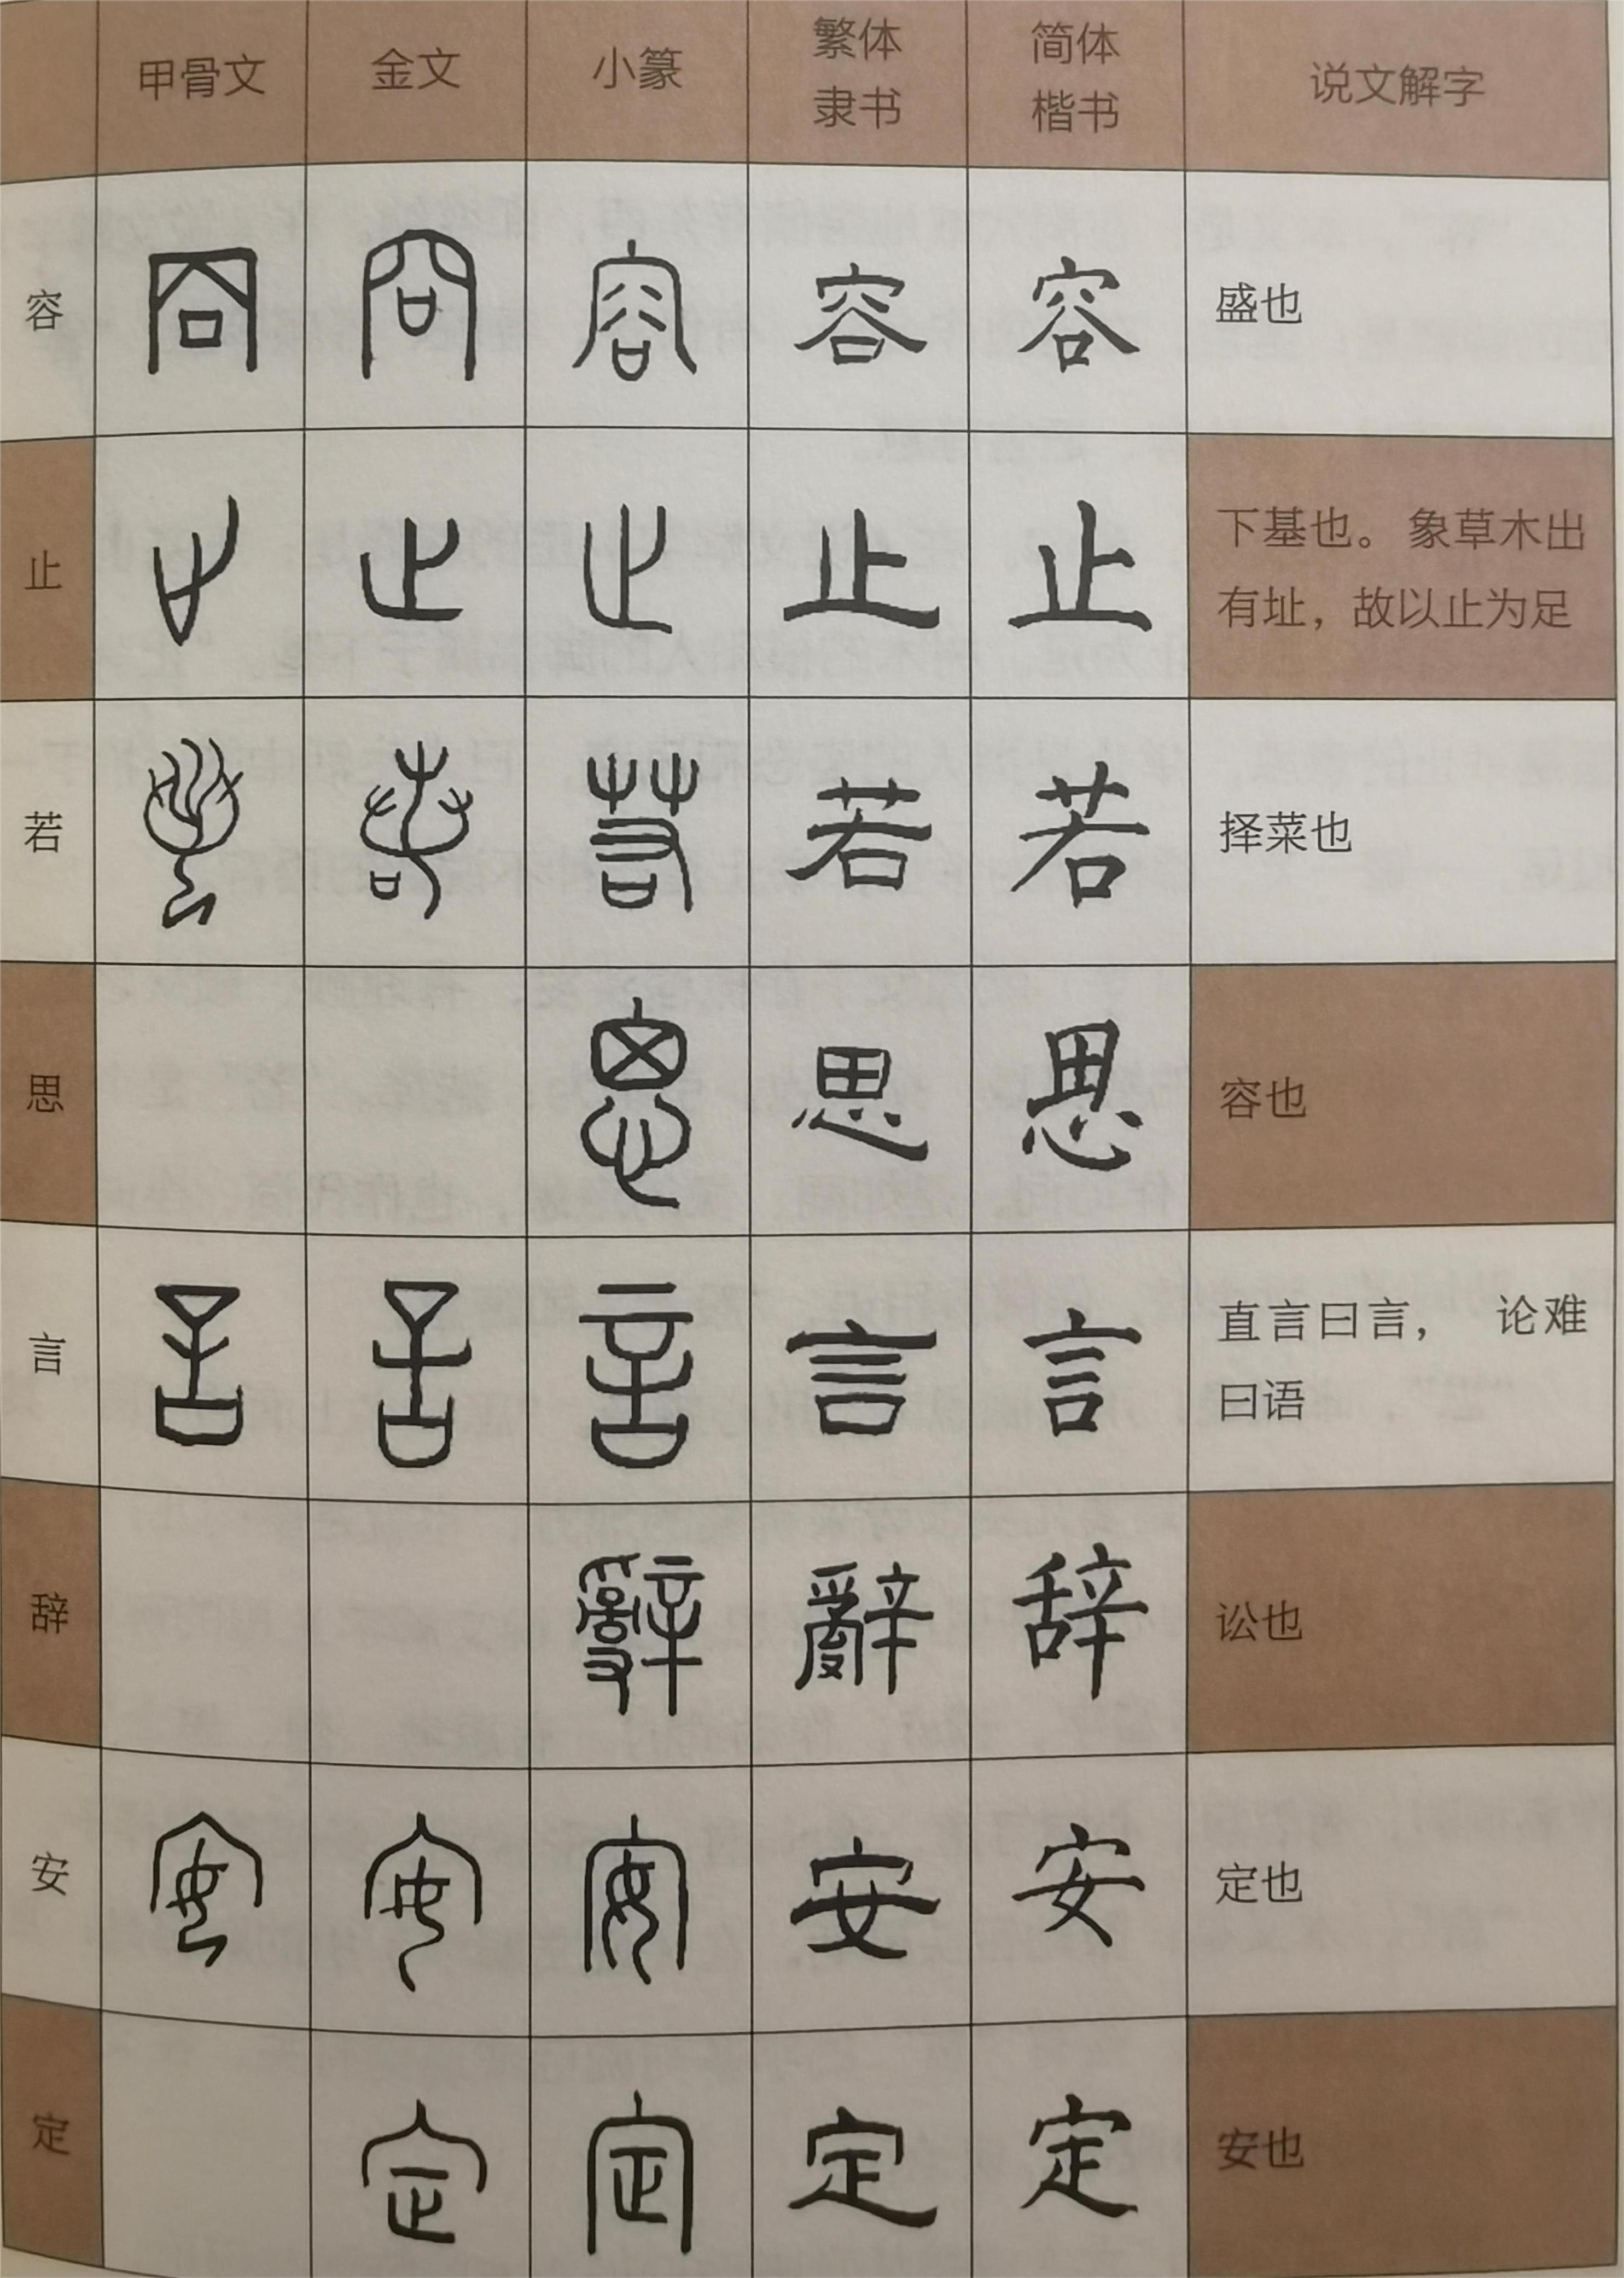 甲骨文 金文 小篆 繁体隶书 简体楷书 说文解字
容 容 容 容 容 容 盛也
止 止 止 止 止 止 下基也。象草木出
有址，故以止为足
若 若 若 若 若 若 择菜也
思 思 思 思 容也
言 言 言 言 言 言 直言曰言， 论难
曰语
辞 辭 辭 辞 讼也
安 安 安 安 安 安 定也
定 定 定 定 定 安也